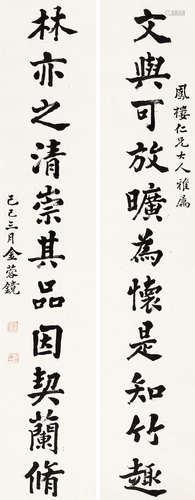 鳳樓仁兄大人雅屬
文與可放曠為懷是知竹趣
林亦之清崇其品因契蘭脩
己巳三月金蓉鏡